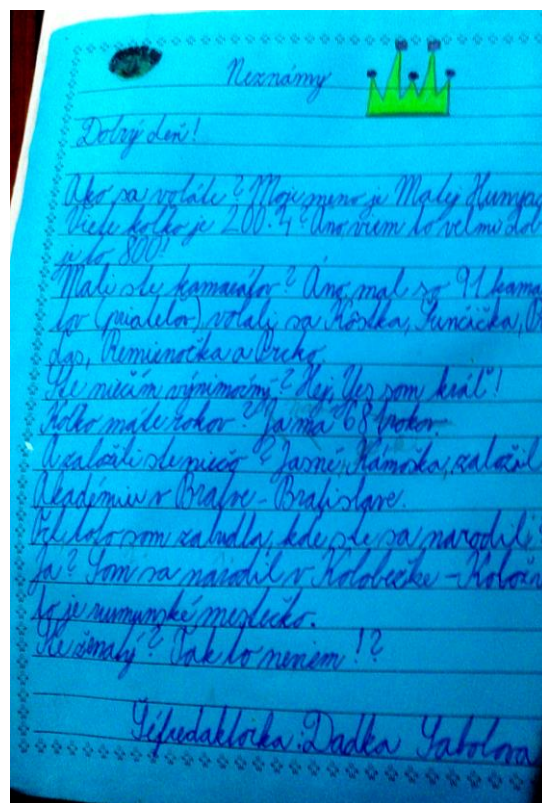 Neznámy
Dobrý deň!
Ako sa voláte? Moje meno je Matej Hunyad
Viete koľko je 200.4? Áno viem to veľmi dob
je to 800!
Mali ste kamarátov? Áno, mal so 91 kama
tov (priateľov) volali sa Kôstka,
das, Remienočka a Prcko.
Ste niečím výnimočný? Hej, Yes som kráľ!
Koľko máte rokov? Ja má 681rokov.
A založili ste niečo? Jasné, Kámoška, založil
Akadémiu v Bratve - Bratislave.
toto som zabudla, kde ste sa narodili?
Ja? Som sa narodil v Kolobežke - Kolož
to je rumunské mestečko.
Ste ženatý? Tak to neviem!?
Šéfredaktorka: Dadka Sabolova